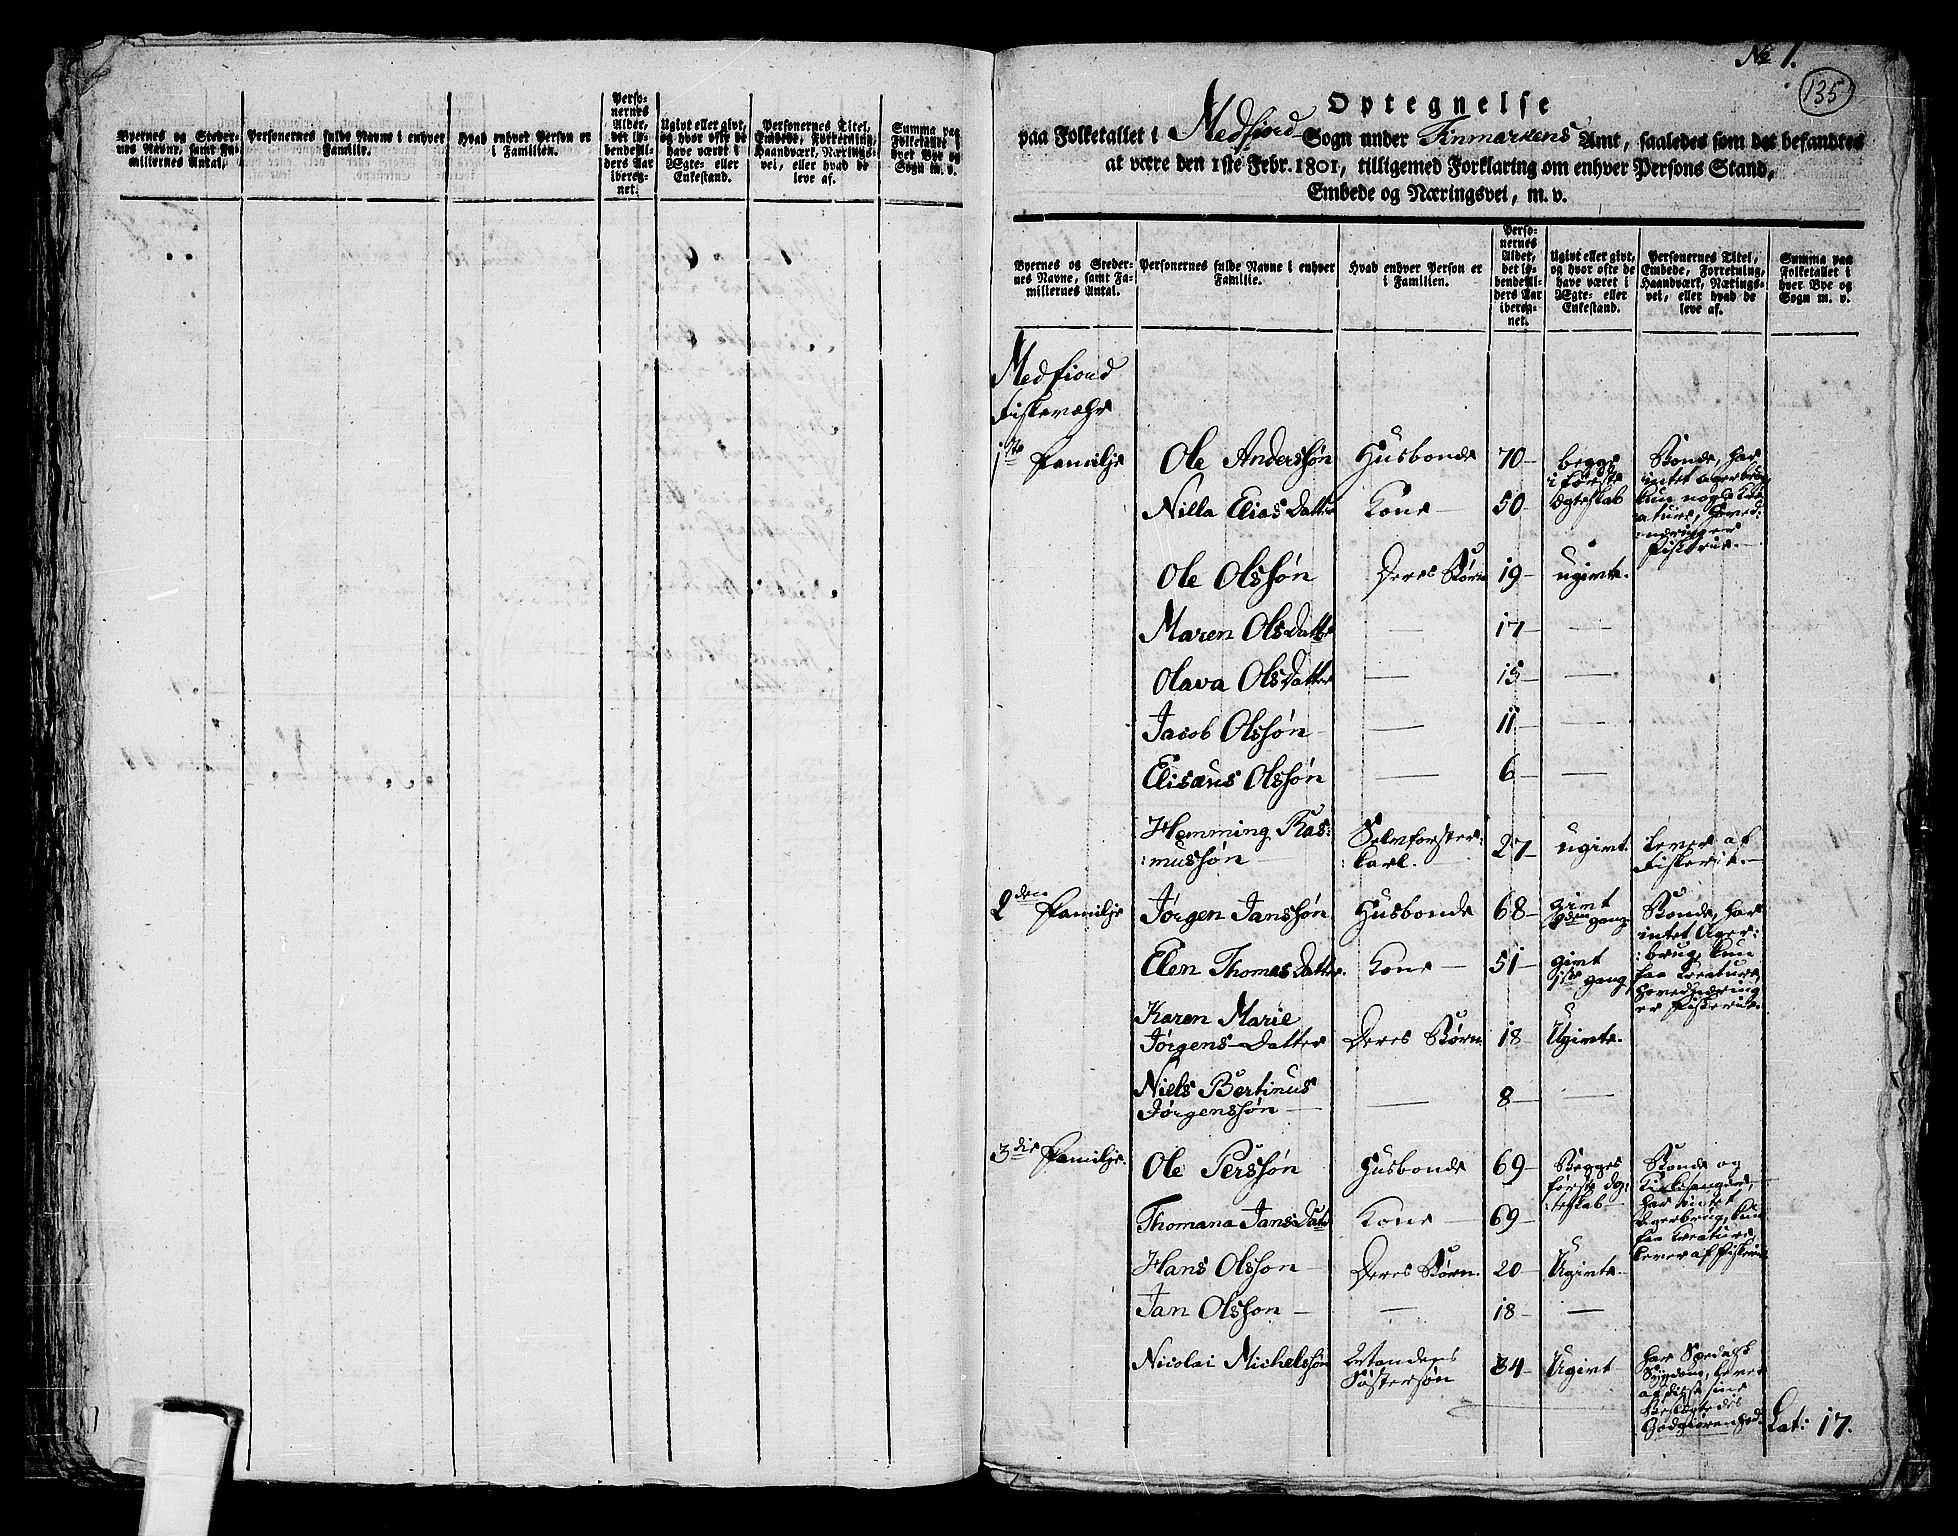 Byernes og Steder-
nes Navne, samt Fa-
miliernes Antal.
Personernes fulde Navne i enhver
Familie.
Hvad enhver Person er
i Familien.
Perso-
nernes
Alder,
det lø-
bende Al-
ders Aar
ibereg-
net.
Ugivt eller givt,
og hvor ofte de
have været i
Ægte- eller
Enkestand.
Personernes Titel,
Embede, Forretning,
Haandværk, Nærings-
vei, eller hvad de
leve af.
Summa paa
Folketallet i
hver Bye og
Sogn m. v.
No 1.
135
Optegnelse
paa Folketallet i Medfiord Sogn under Finmarkens Amt, saaledes som det befandtes
at være den 1ste Febr. 1801, tilligemed Forklaring om enhver Persons Stand,
Embede og Næringsvei, m. v.
Byernes og Steder-
nes Navne, samt Fa-
miliernes Antal.
Personernes fulde Navne i enhver
Familie.
Hvad enhver Person er
i Familien.
Perso-
nernes
Alder,
det lø-
bende Al-
ders Aar
ibereg-
net.
Ugivt eller givt,
og hvor ofte de
have været i
Ægte- eller
Enkestand.
Personernes Titel,
Embede, Forretning,
Haandværk, Nærings-
vei, eller hvad de
leve af.
Summa paa
Folketallet i
hver Bye og
Sogn m. v.
Medfiord
Fiskevæhr
1ste Familje Ole Anderssøn Husbonde 70 begge i første Ægteskab
Bonde, har
intet Agerbrug,
kun nogle Kre
ature, Hoved:
næringer
Fiskerie.
Nilla Elias Datter Kone 50
Ole Olssøn Deres Børn 19 ugivte.
Maren Olsdatter — 17 —
Olava Olsdatter — 15 —
Jacob Olssøn — 11 —
Elisæus Olssøn — 6 —
Hemming Ras:
:mussøn Selvforster:
:karl. 27 ugivt. Lever af
Fiskerie.
2den Familje Jørgen Janssøn Husbonde 68 givt
2den gang.
Bonde, har
intet Ager:
:brug, kun
faa Kreature,
Hovednæring
er Fiskerie.
Elen Thomas Datter Kone 51 givt
1ste gang
Karen Marie
Jørgens Datter Deres Børn 18 Ugivte.
Niels Bertinus
Jørgenssøn — 8 —
3die Familje. Ole Perssøn Husbonde 69 Begges
første Æg:
:teskab
Bonde og
Kirkesanger,
har intet
Agerbrug, kun
faa Kreature,
lever af Fiskerie
Thomana Jansdatr Kone 69
Hans Olsson Deres Børn. 20 Ugivte.
Jan Olsson — 18 —
Nicolai Michelssøn
Søstersøn 34 Ugivt
har Spedalsk
Sygdom, lever
af disse sine
Beslægtedes
Godgiørenhed.
Lat: 17.